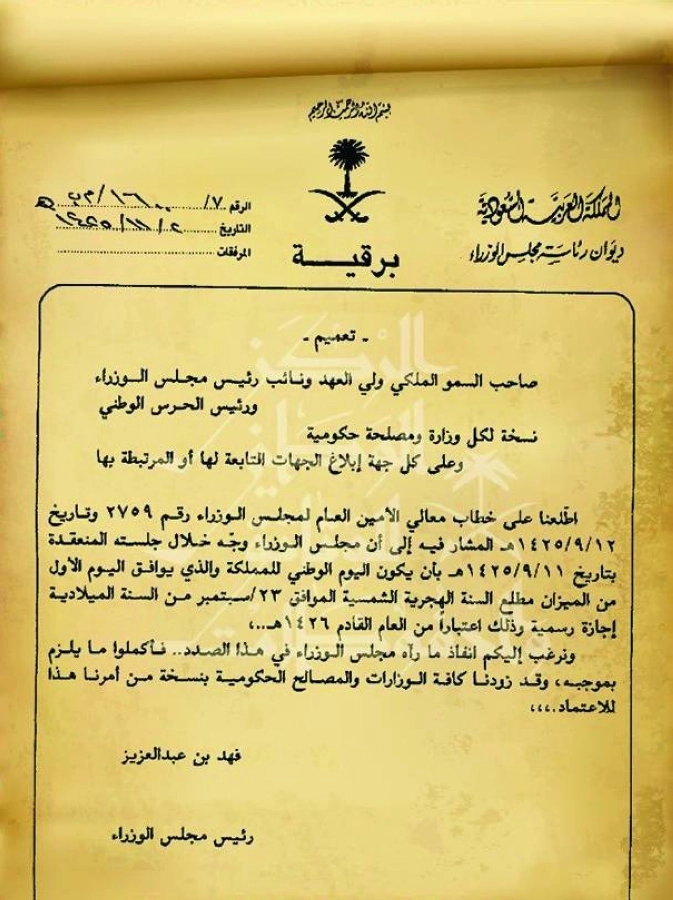 بسم الله الرحمن الرحيم
المملكة العربية السعودية
ديوان رئاسة مجلس الوزراء
الرقم ٧/
التاريخ
المرفقات
برقية
- تعميم -
صاحب السمو الملكي ولي العهد ونائب رئيس مجلس الوزراء
ورئيس الحرس الوطني
نسخة لكل وزارة ومصلحة حكومية
وعلى كل جهة إبلاغ الجهات التابعة لها أو المرتبطة بها
اطّلعنا على خطاب معالي الأمين العام لمجلس الوزراء رقم ٢٧٥٩ وتاريخ
١٤٢٥/٩/١٢هـ المشار فيه إلى أن مجلس الوزراء وجّه خلال جلسته المنعقدة
بتاريخ ١٤٢٥/٩/١١هـ بأن يكون اليوم الوطني للمملكة والذي يوافق اليوم الأول
من الميزان مطلع السنة الهجرية الشمسية الموافق ٢٣/سبتمبر من السنة الميلادية
إجازة رسمية وذلك اعتباراً من العام القادم ١٤٢٦هـ..،
ونرغب إليكم انفاذ ما رآه مجلس الوزراء في هذا الصدد.. فأكملوا ما يلزم
بموجبه، وقد زودنا كافة الوزارات والمصالح الحكومية بنسخة من أمرنا هذا
للاعتماد.،،،
فهد بن عبدالعزيز
رئيس مجلس الوزراء